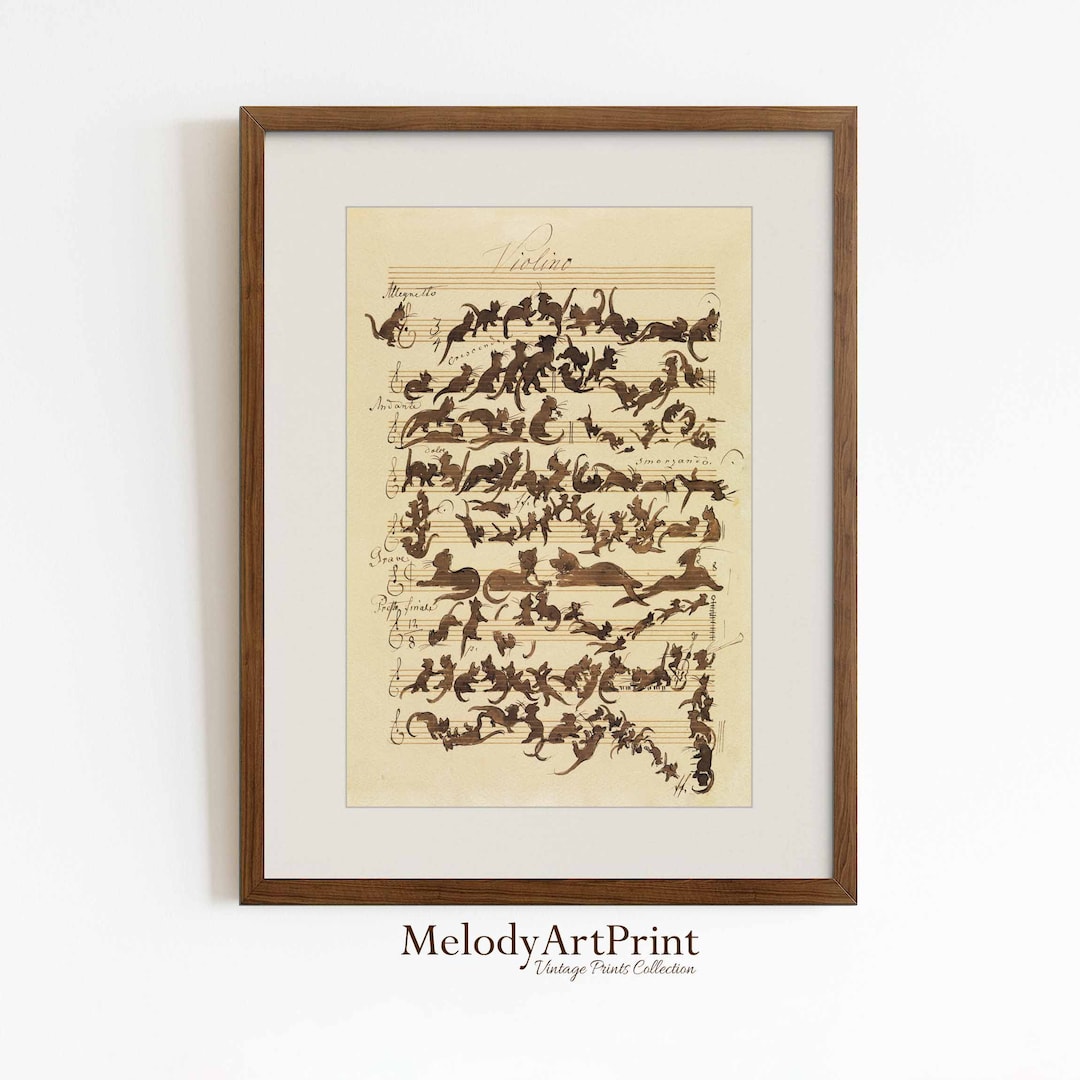 Violino
Allegretto
3
4
crescendo
Andante
dolce
smorzando.
Grave
Presto finale
12
8
MelodyArtPrint
Vintage Prints Collection